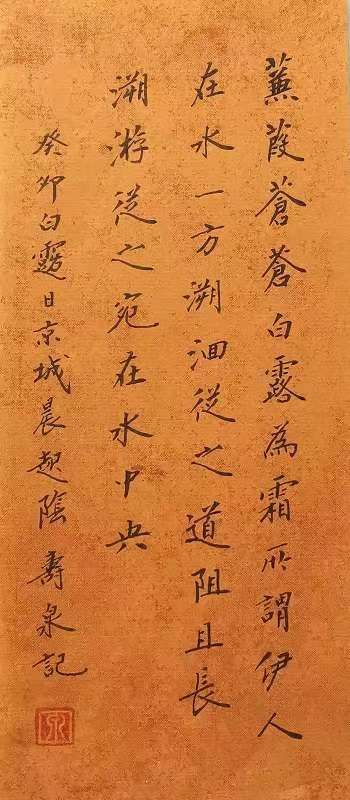 蒹葭蒼蒼白露為霜所謂伊人
在水一方溯洄從之道阻且長
溯游從之宛在水中央
癸卯白露日京城晨起陰 壽泉記